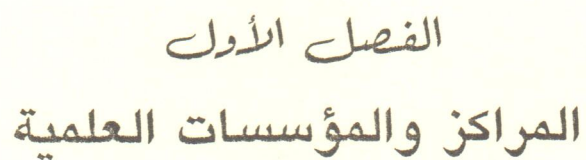 الفصل الأول
المراكز والمؤسسات العلمية